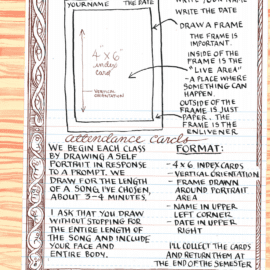 YOUR NAME THE DATE
WRITE THE DATE
DRAW A FRAME
THE FRAME IS
IMPORTANT.
INSIDE OF THE
FRAME IS THE
"LIVE AREA"
- A PLACE WHERE
SOMETHING CAN
HAPPEN
OUTSIDE OF THE
FRAME IS JUST
PAPER. THE
FRAME IS THE
ENLIVENER
4" x 6"
index
card
VERTICAL
ORIENTATION
attendance cards
WE BEGIN EACH CLASS
BY DRAWING A SELF
PORTRAIT IN RESPONSE
TO A PROMPT. WE
DRAW FOR THE LENGTH
OF A SONG I'VE CHOSEN,
ABOUT 3-4 MINUTES.
I ASK THAT YOU DRAW
WITHOUT STOPPING FOR
THE ENTIRE LENGTH OF
THE SONG AND INCLUDE
YOUR FACE AND
ENTIRE BODY.
FORMAT:
- 4x6 INDEX CARDS
- VERTICAL ORIENTATION
- FRAME DRAWN
AROUND PORTRAIT
AREA
- NAME IN UPPER
LEFT CORNER
- DATE IN UPPER
RIGHT
I'LL COLLECT THE CARDS
AND RETURN THEM AT
THE END OF THE SEMESTER